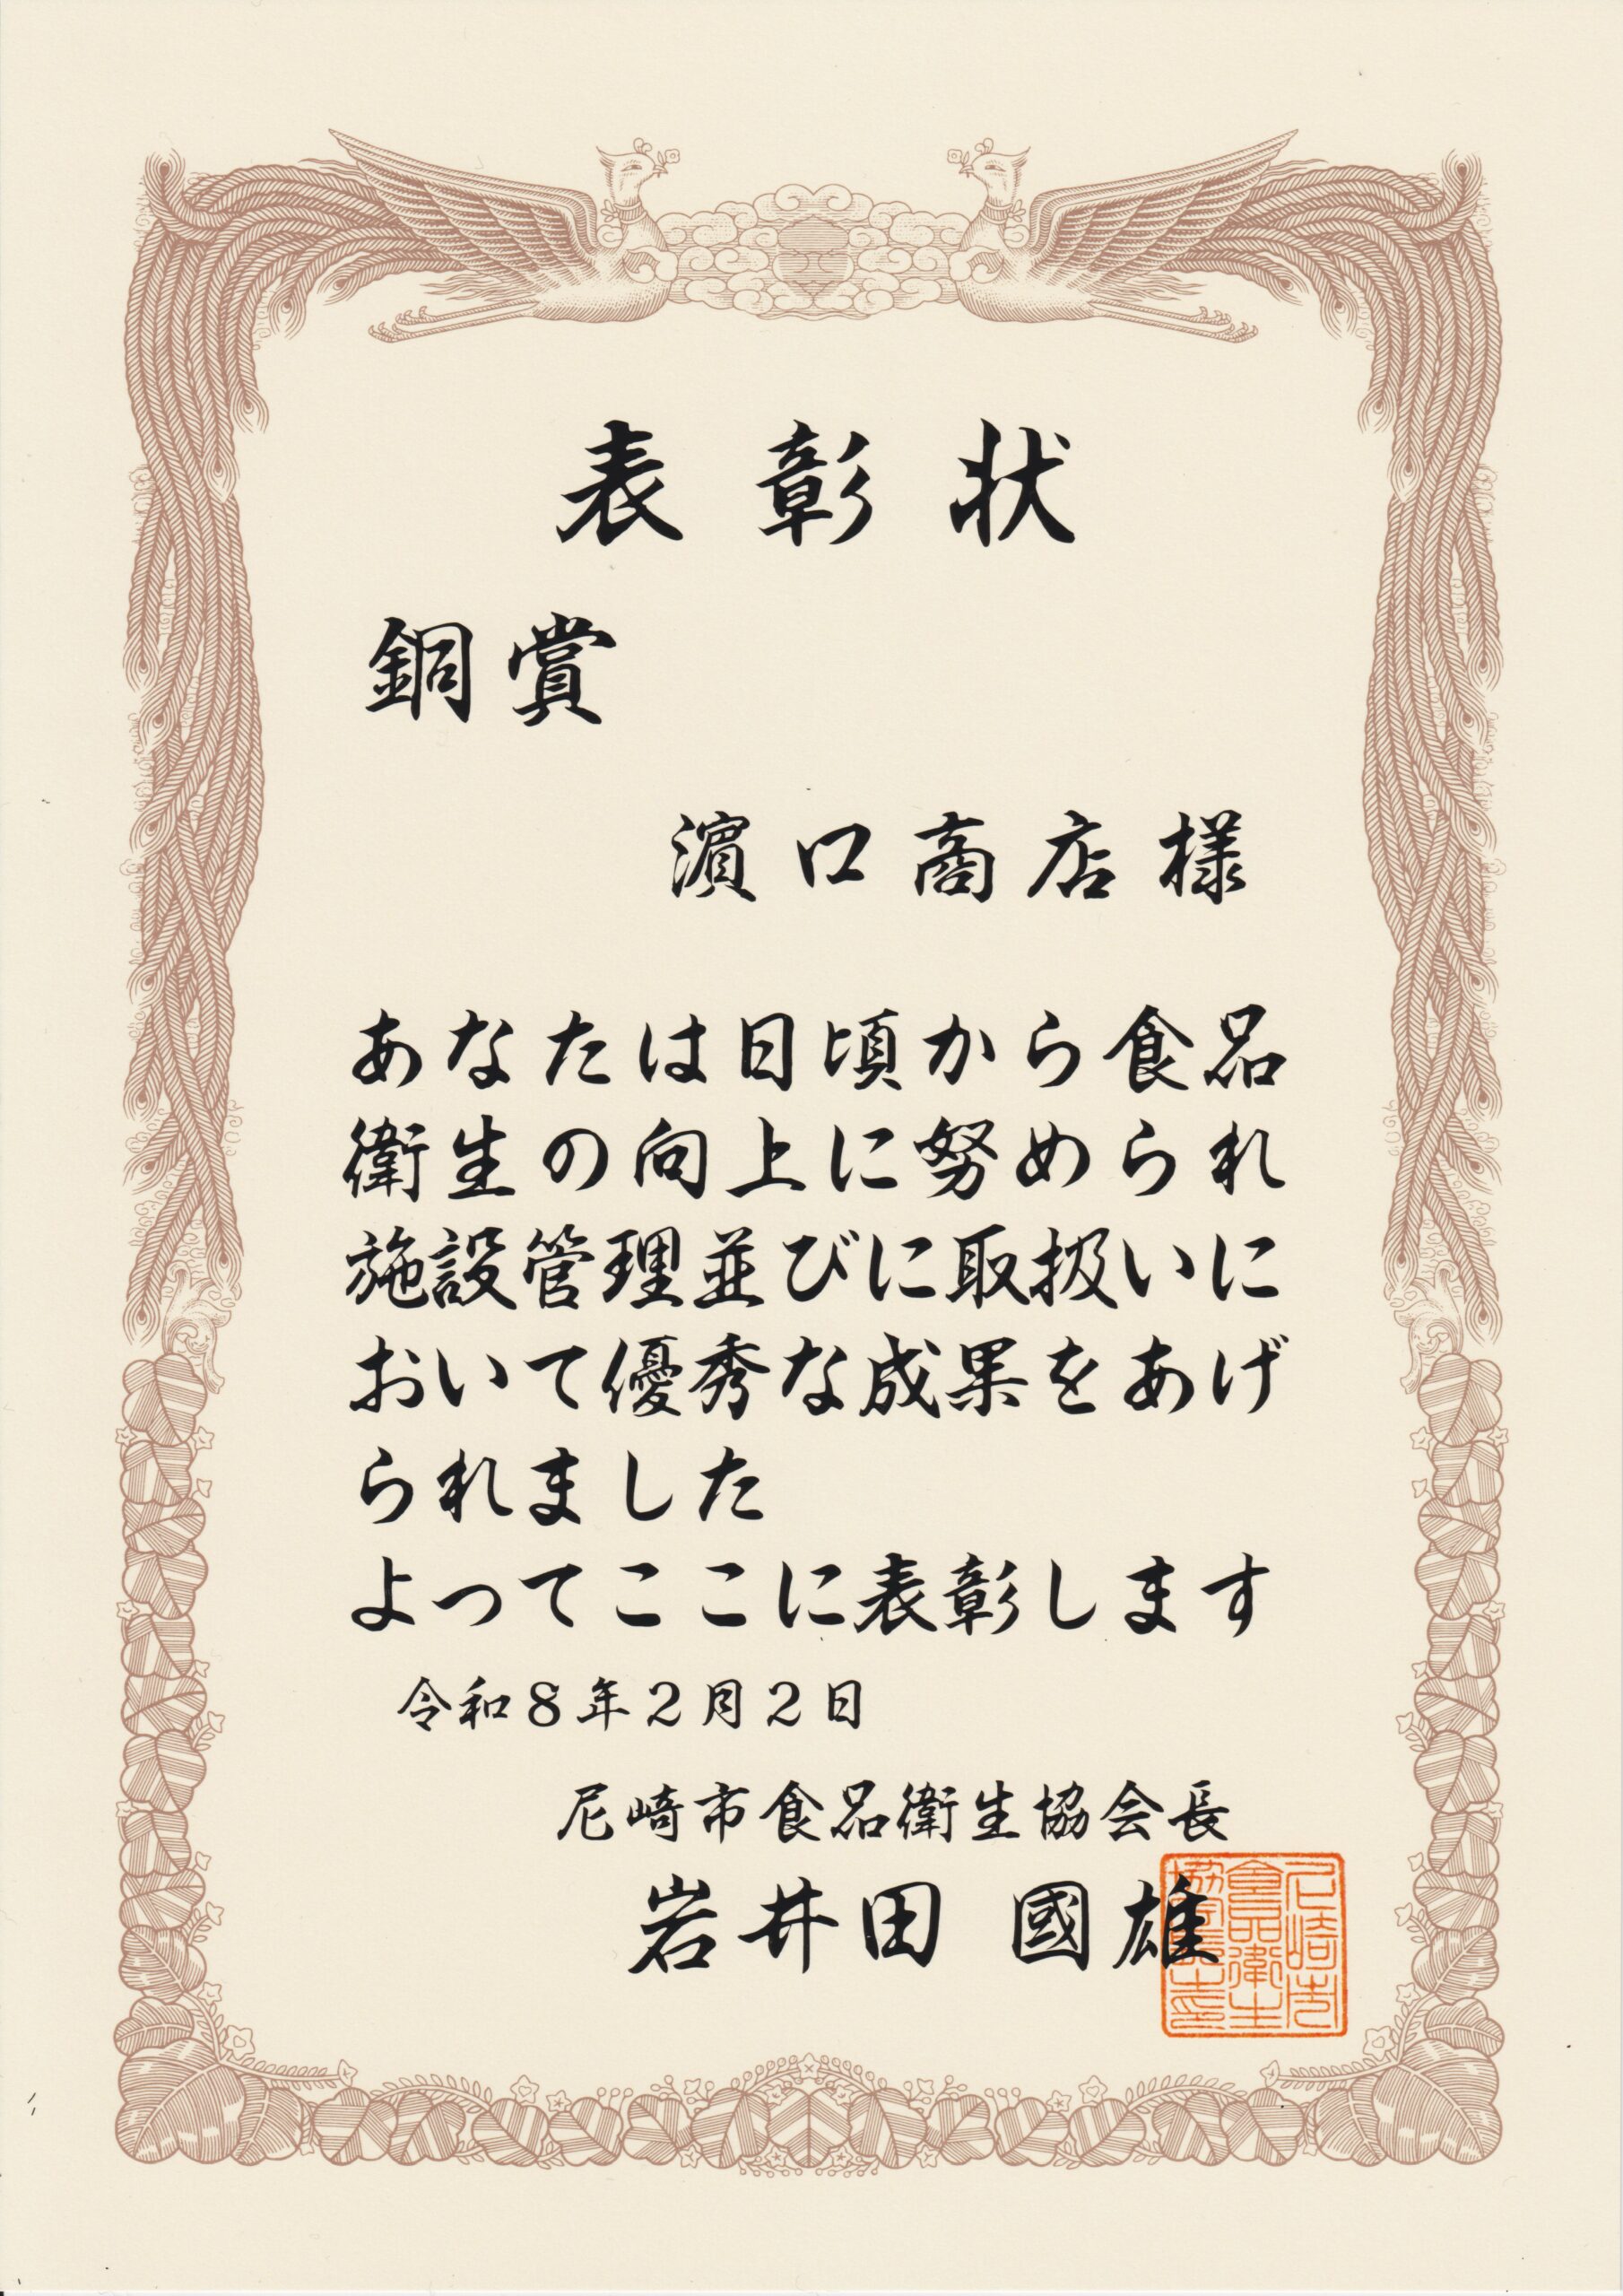 表彰状
銅賞
濵口商店様
あなたは日頃から食品
衛生の向上に努められ
施設管理並びに取扱いに
おいて優秀な成果をあげ
られました
よってここに表彰します
令和8年2月2日
尼崎市食品衛生協会長
岩井田 國雄
尼崎市
食品衛生
協会長之印